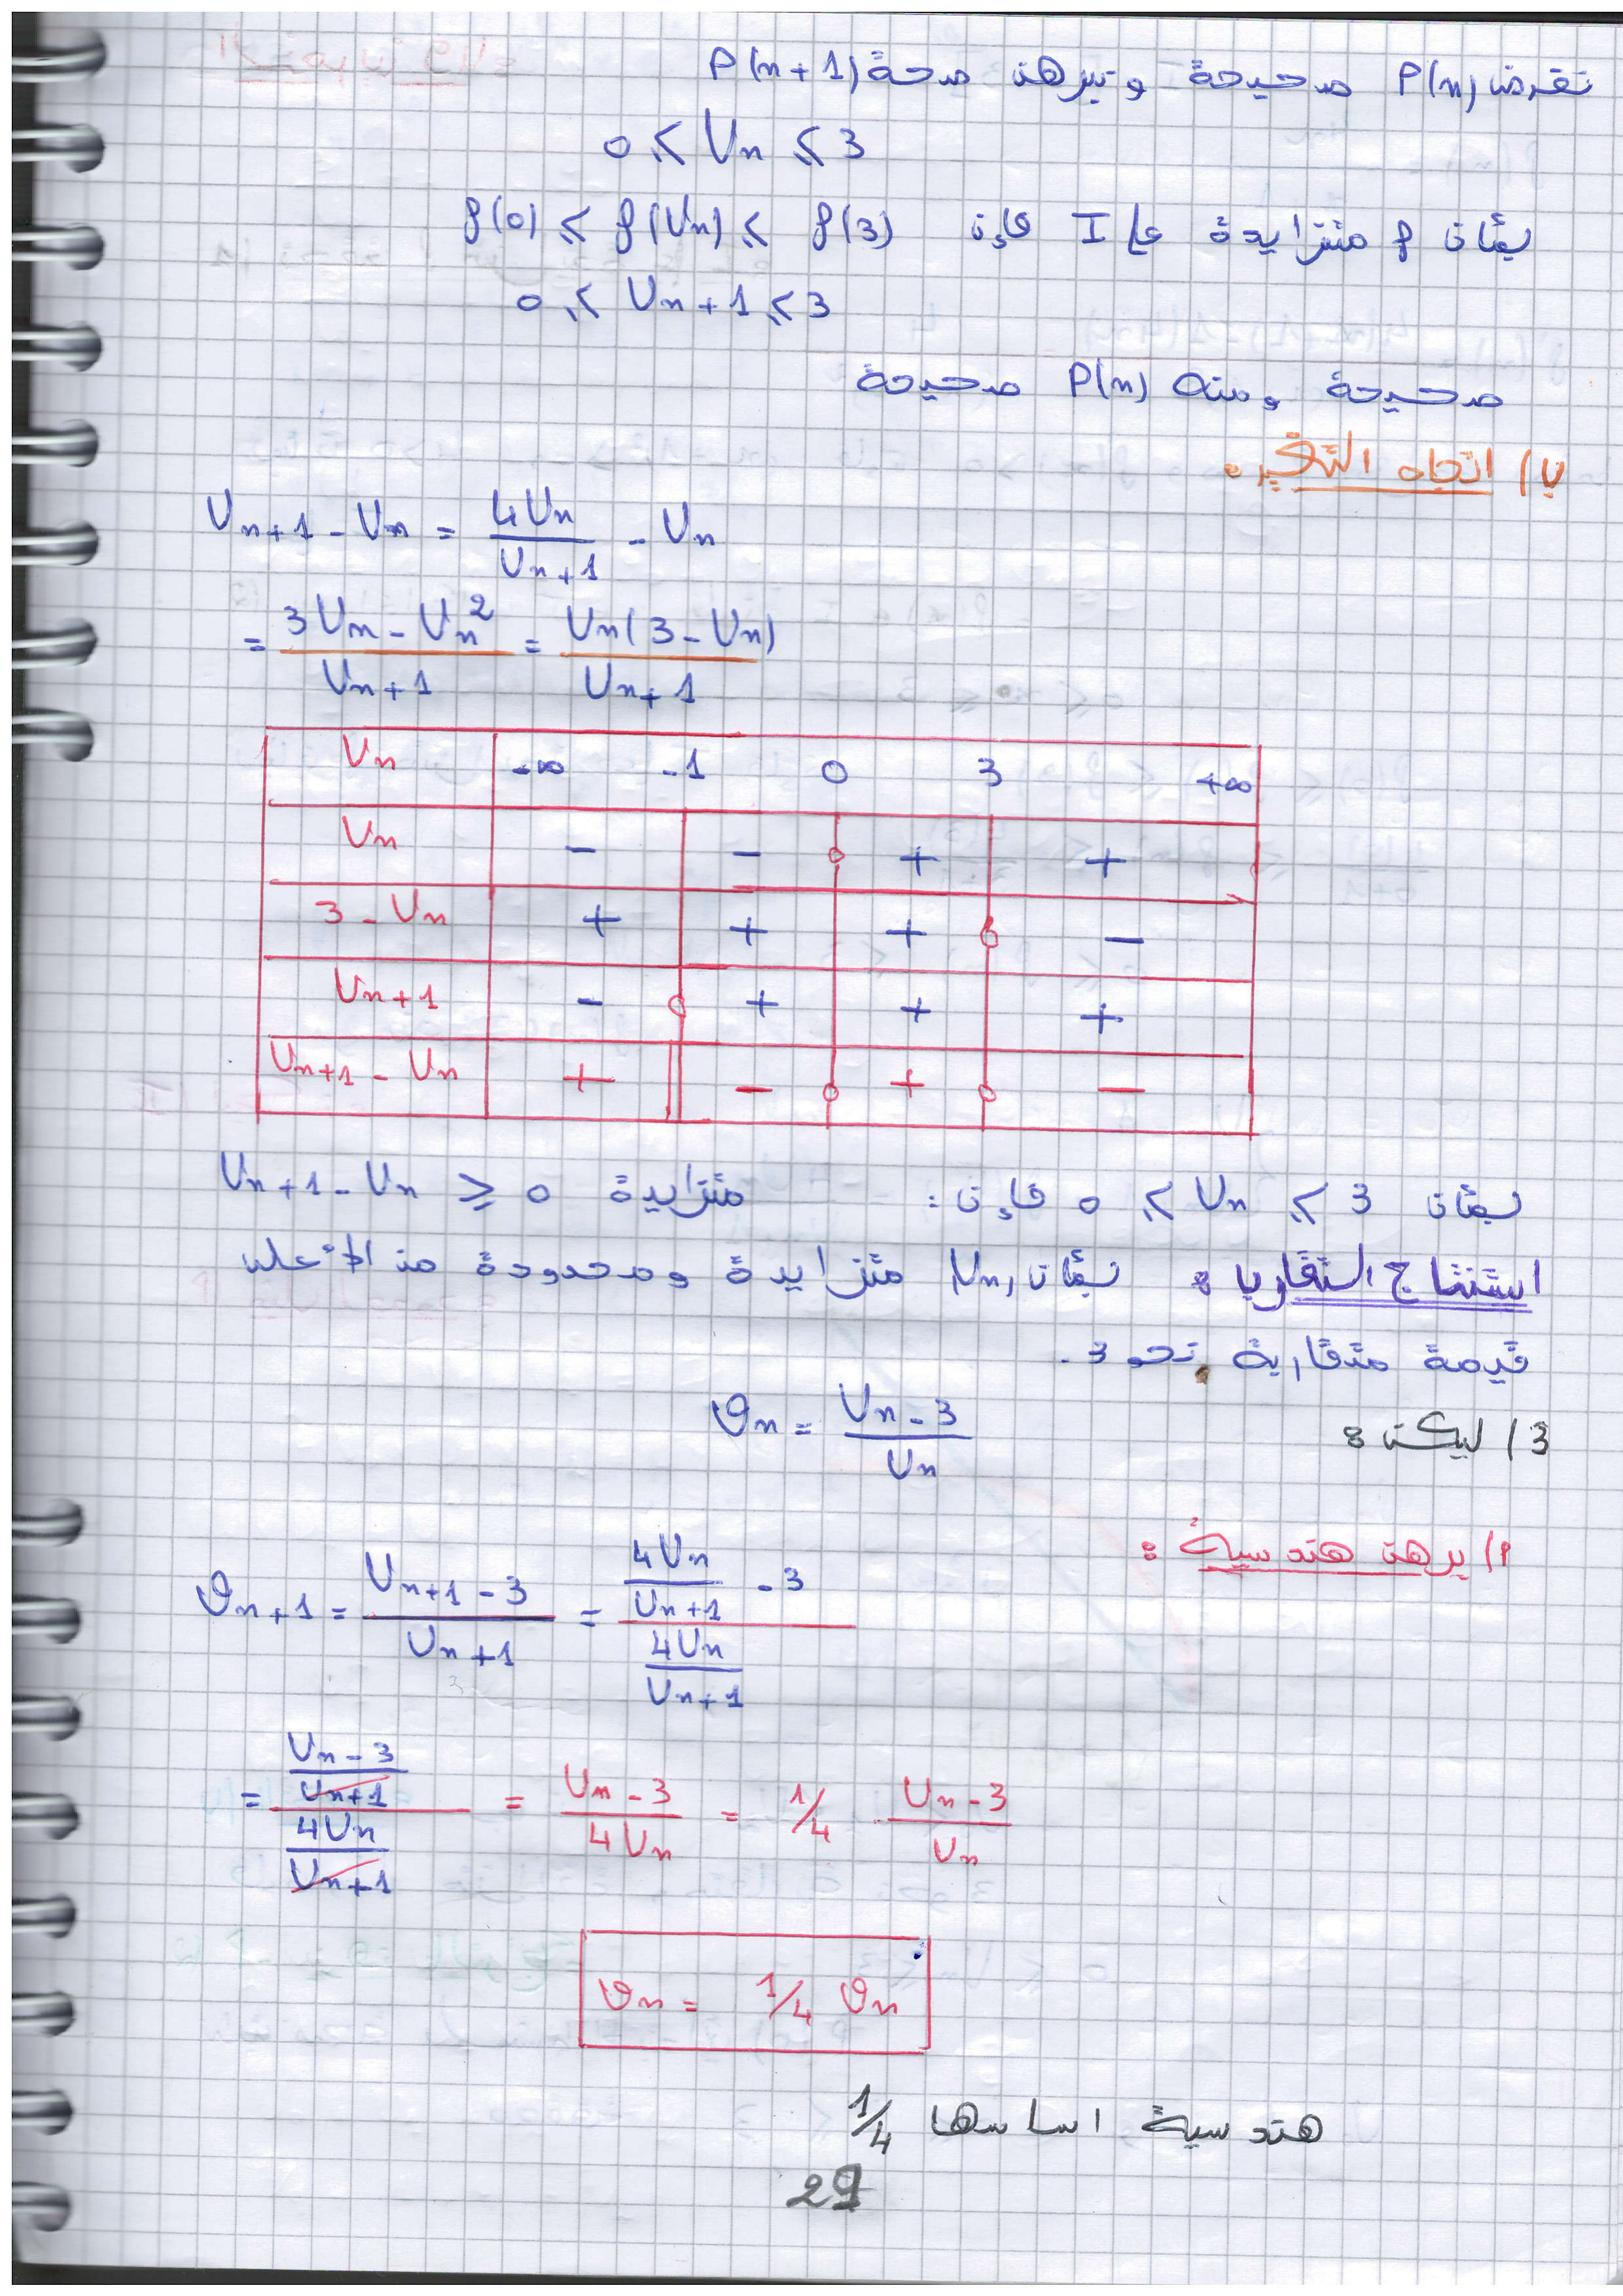 نفرض P(n) صحيحة ونبرهن صحة P(n+1)
0 ≤ Un ≤ 3
بمأن f متزايدة على I فإن f(0) ≤ f(Un) ≤ f(3)
0 ≤ Un+1 ≤ 3
صحيحة ومنه P(n) صحيحة
ب/ اتجاه التغير:
Un+1 - Un = 4Un/Un+1 - Un
= 3Un - Un²/Un+1 = Un(3 - Un)/Un+1
Un -∞ -1 0 3 +∞
Un - - 0 + +
3 - Un + + + 0 -
Un+1 - 0 + + +
Un+1 - Un + || - 0 + 0 -
بمأن 0 ≤ Un ≤ 3 فإن: متزايدة Un+1 - Un ≥ 0
استنتاج التقارب: بمأن Un متزايدة ومحدودة من الأعلى
متقاربة نحو 3.
3/ ليكن: ϑn = Un - 3/Un
أ/ برهن هندسية:
ϑn+1 = Un+1 - 3/Un+1 = (4Un/Un+1 - 3)/(4Un/Un+1)
= (Un - 3/Un+1)/(4Un/Un+1) = Un - 3/4Un = 1/4 Un - 3/Un
ϑn = 1/4 ϑn
هندسية اساسها 1/4
29